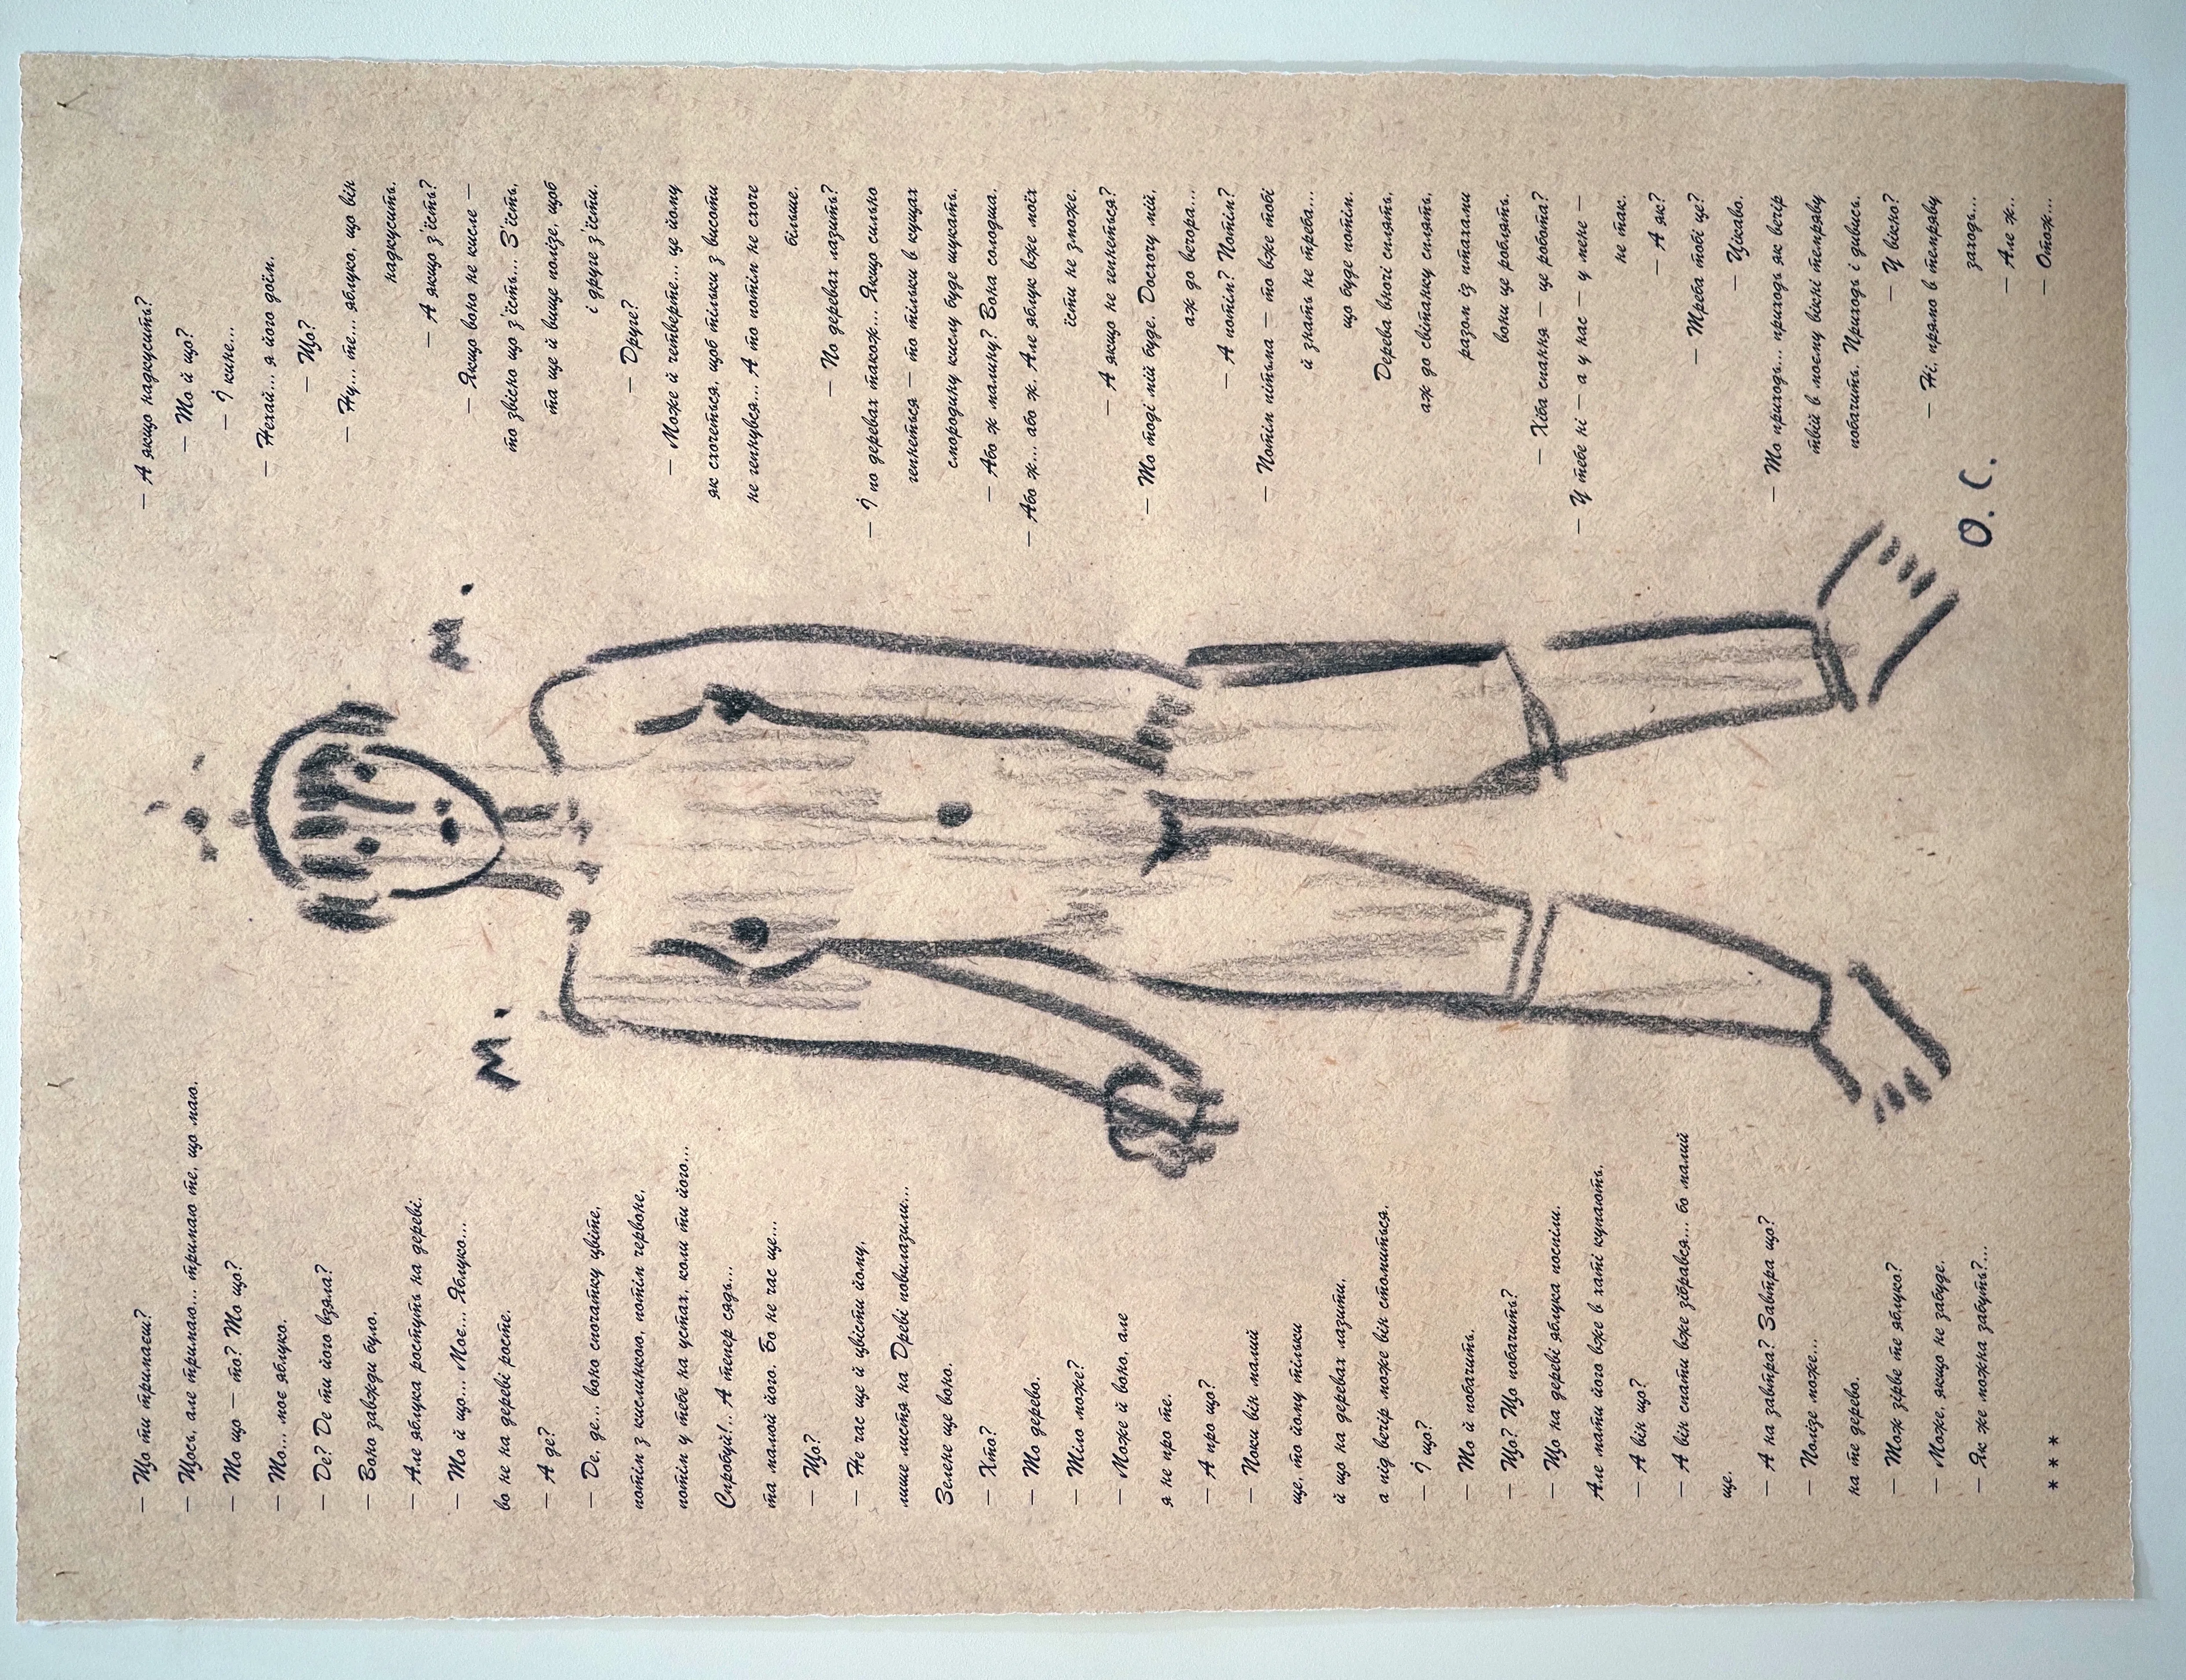 — Що ти тримаєш?
— Щось, але тримаю... тримаю те, що маю.
— То що — то? То що?
— То... моє яблуко.
— Де? Де ти його взяла?
— Воно завжди було.
— Але яблука ростуть на дереві.
— То й що... Моє... Яблуко...
во не на дереві росте.
— А де?
— Де, де... воно спочатку цвіте,
потім з кислинкою, потім червоне,
потім у тебе на устах, коли ти його...
Спробуй!.. А тепер сядь...
та малюй його. Бо не час ще...
— Що?
— Не час ще й цвісти йому,
лише листя на Древі повилазили...
Зелене ще воно.
— Хто?
— То дерево.
— Тіло може?
— Може й воно, але
я не про те.
— А про що?
— Поки він малий
ще, то йому тільки
й що на деревах лазити,
а під вечір може він стомиться.
— І що?
— То й побачить.
— Що? Що побачить?
— Що на дереві яблука поспіли.
Але мати його вже в хаті купають.
— А він що?
— А він спати вже зібрався... бо малий
ще.
— А на завтра? Завтра що?
— Полізе може...
на те дерево.
— Тож зірве те яблуко?
— Може, якщо не забуде.
— Як же можна забуть?...
* * *
— А якщо надкусить?
— То й що?
— І кине...
— Нехай... я його доїм.
— Що?
— Ну... те... яблуко, що він
надкусить.
— А якщо з'їсть?
— Якщо воно не кисле —
то звісно що з'їсть... З'їсть,
та ще й вище полізе, щоб
і друге з'їсти.
— Друге?
— Може й четверте... це йому
як схочеться, щоб тільки з висоти
не гепнувся... А то потім не схоче
більше.
— По деревах лазить?
— І по деревах також... Якщо сильно
гепнеться — то тільки в кущах
смородину кислу буде шукать.
— Або ж малину? Вона солодша.
— Або ж... або ж. Але яблук вже моїх
їсти не зможе.
— А якщо не гепнеться?
— То тоді мій буде. Досхочу мій,
аж до вечора...
— А потім? Потім?
— Потім пітьма — то вже тобі
й знать не треба...
що буде потім.
Дерева вночі сплять,
аж до світанку сплять,
разом із птахами
вони це роблять.
— Хіба спання — це робота?
— У тебе ні — а у нас — у мене —
не так.
— А як?
— Треба тобі це?
— Цікаво.
— То приходь... приходь як вечір
твій в моєму вікні темряву
побачить. Приходь і дивись.
— У вікно?
— Ні, прямо в темряву
заходь...
— Але ж..
— Отож...
М.
М.
О. С.